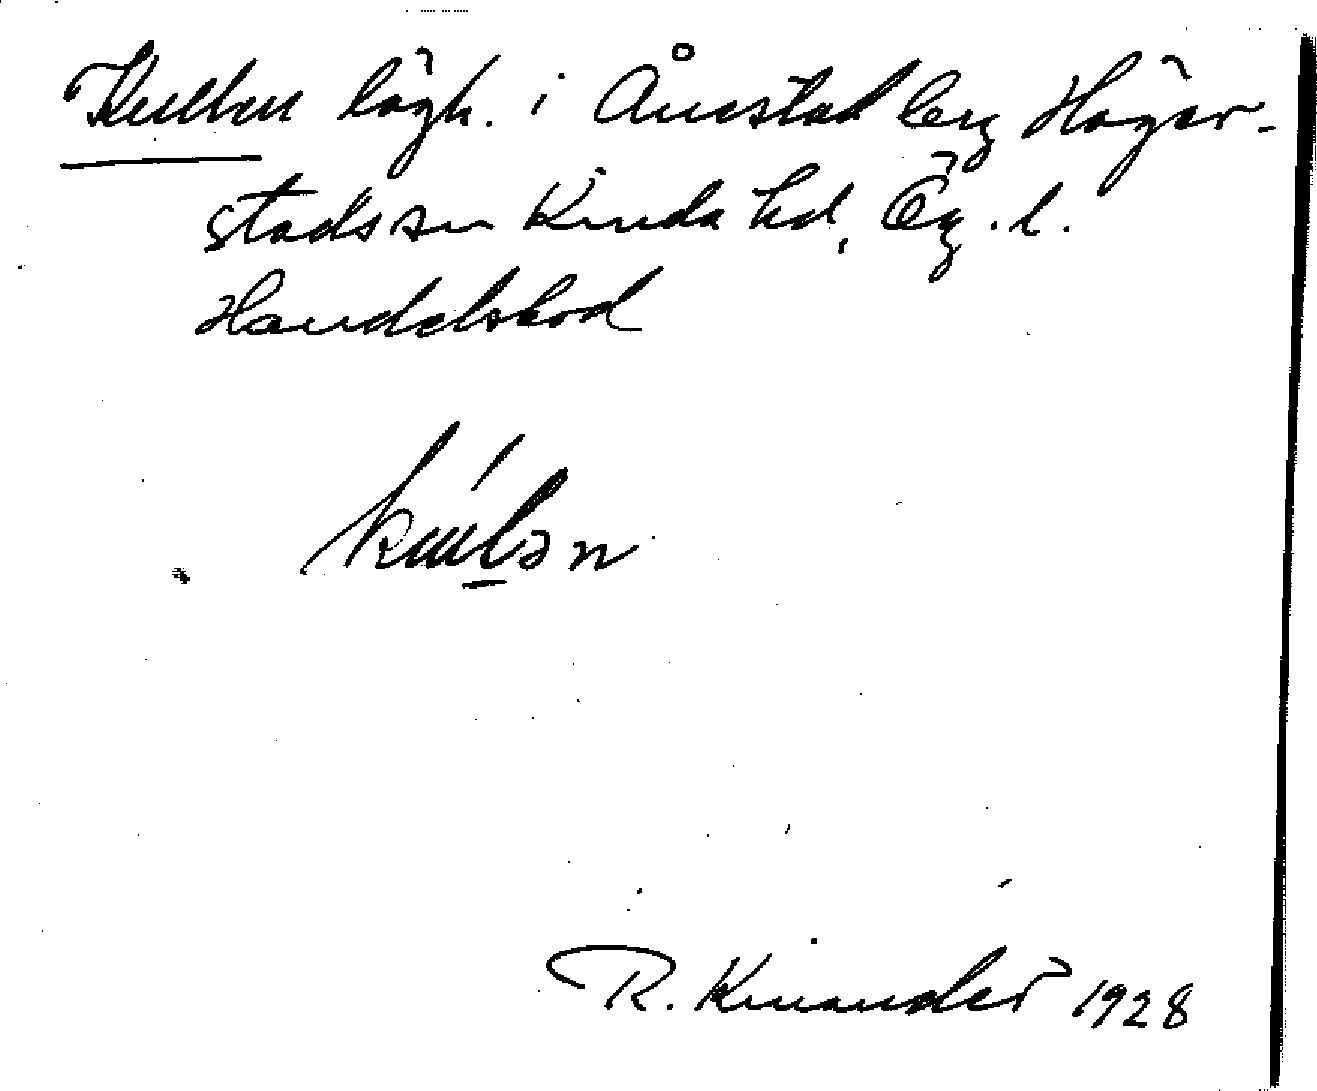 Kullen lägh. i Ånestad by Häger-
stads sn Kinda hd, Ög. l.
Handelsbod
R. Kinander 1928